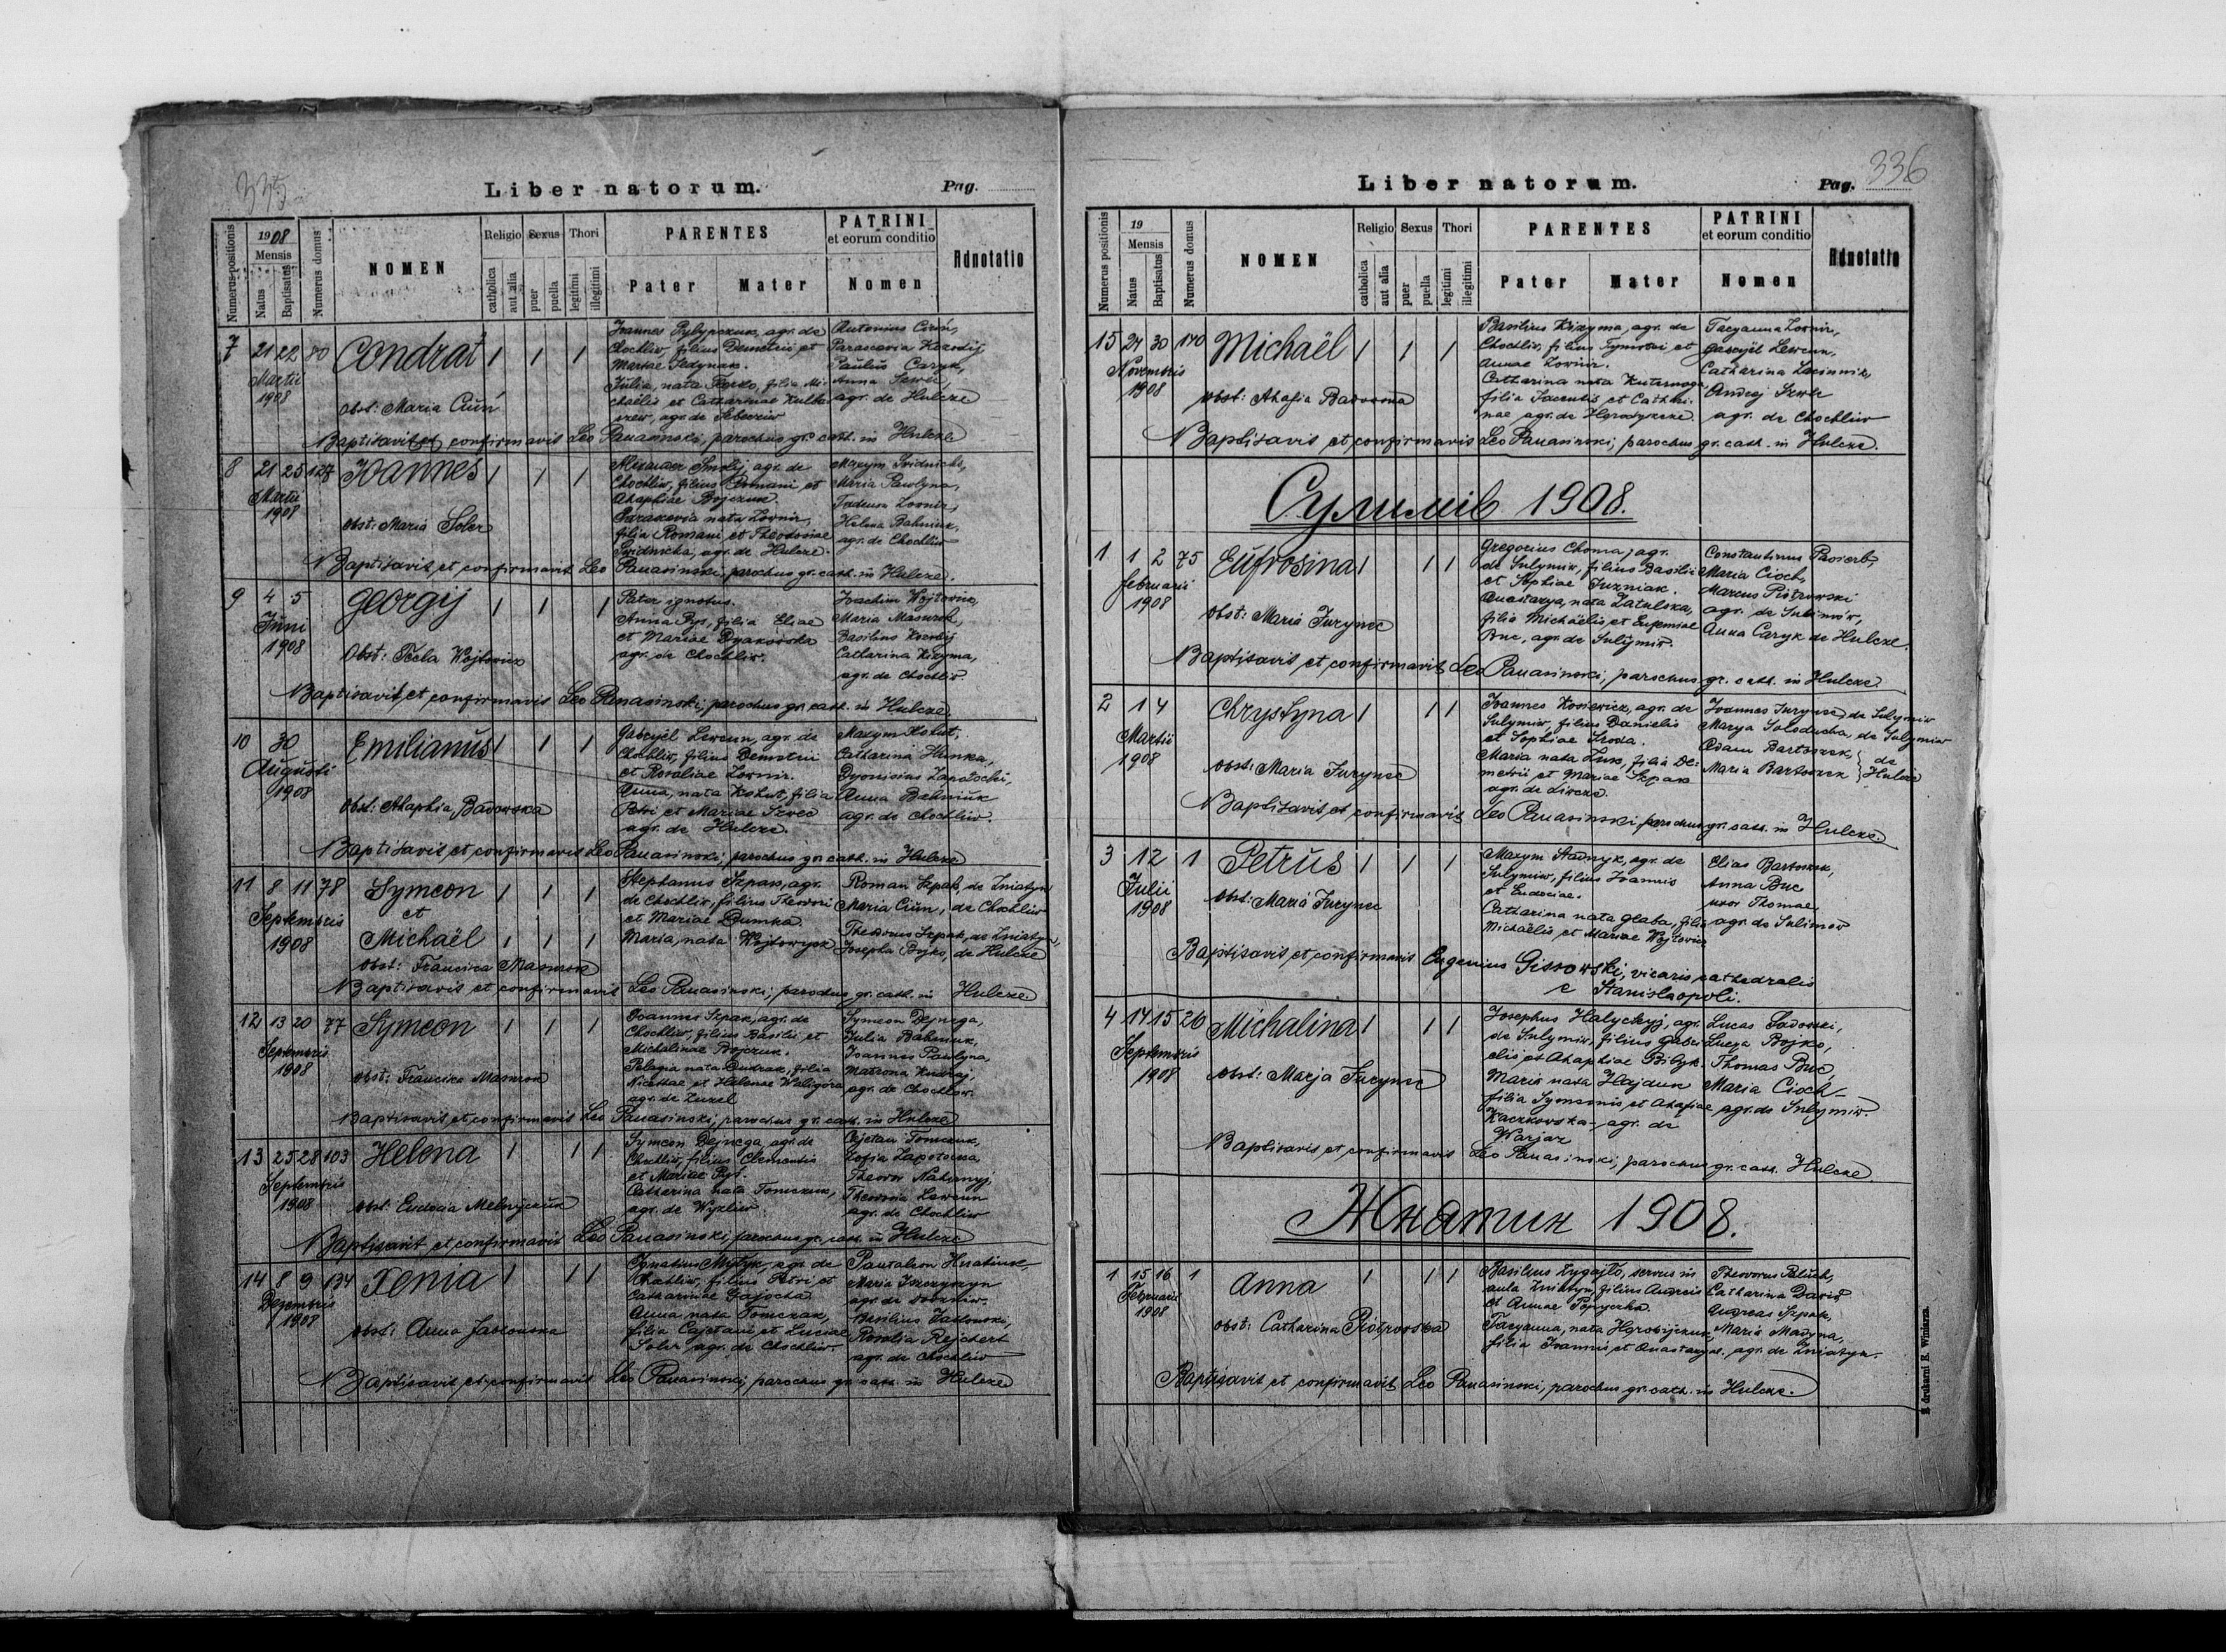 335
Liber natorum.
Pag.
Numerus positionis
1908
Mensis
Natus
Baptisatus
Numerus domus
NOMEN
Religio
catholica
aut alia
Sexus
puer
puella
Thori
legitimi
illegitimi
PARENTES
Pater
Mater
PATRINI
et eorum conditio
Nomen
Adnotatio
7 21 22 80 Condrat 1 1 1
Martii
1908
Obst: Maria Ciuń
Joannes Pylypczuk, agr. de
Chochliw, filius Demetrii et
Mariae Sedynak.
Julia, nata Fedko, filia Mi-
chaëlis et Catharinae
agr. de Sebeczów
Antonius Ciuń,
Parascevia Kizodij
Paulus Caryk,
Anna
agr. de Hulcze
Baptisavit et confirmavit Leo Panasinski, parochus gr. cath. in Hulcze
8 21 25 127 Joannes 1 1 1
Martii
1908
Obst: Maria Soler
Smolij, agr. de
Chochliw, filius Romani et
Ahaphiae Bojczuk.
Paraxevia nata Lownir,
filia Romani et Theodosiae
Svidnicha, agr. de Hulcze.
Maxym Svidnicki,
Maria Pawlyna,
Tadeusz Lownir,
Helena Bahniuk,
agr. de Chochliw
Baptisavit et confirmavit Leo Panasinski, parochus gr. cath. in Hulcze.
9 4 5 Georgij 1 1 1
Juni
1908
Obst: Tecla Wojtowicz
Pater ignotus.
Anna Rys, filia Eliae
et Mariae Dyakowska
agr. de Chochliw.
Joachim Wojtowicz,
Maria Masurok,
Basilius Kizodij
Catharina Kizyma,
agr. de Chochliw.
Baptisavit et confirmavit Leo Panasinski, parochus gr. cath. in Hulcze.
10 30 Emilianus 1 1 1
Augusti
1908
Obst: Ahaphia Badowska
Gabryël Lewcun, agr. de
Chochliw, filius Demetrii
et Rosaliae Lownir.
Anna, nata Kohut, filia
Petri et Mariae Szwec
agr. de Hulcze.
Maxym Kohut,
Catharina Hlunka,
Dyonisius Zapotochi,
Anna Bahniuk
agr. de Chochliw.
Baptisavit et confirmavit Leo Panasinski, parochus gr. cath. in Hulcze
11 8 11 78 Symeon 1 1 1
Septembris
1908
et
Michaël 1 1 1
Obst: Francisca Masurok
Stephanus Szpak, agr.
de Chochliw, filius Theodori
et Mariae Dumka.
Maria, nata Wojtowycz
Roman Szpak, de Zniatyn
Maria Ciuń, de Chochliw
Theodorus Szpak, de Zniatyn,
Josepha Bojko, de Hulcze
Baptisavit et confirmavit Leo Panasinski, parochus gr. cath. in Hulcze.
12 13 20 77 Symeon 1 1 1
Septembris
1908
Obst: Francisca Masurok
Joannes Szpak, agr. de
Chochliw, filius Basilii et
Michalinae Bojczuk.
Pelagia nata Kudrak, filia
Nicettae et Helenae Waligóra,
agr. de Zuzel
Symeon Dejnega,
Julia Bahniuk,
Joannes Pawlyna,
Matrona Kudraj,
agr. de Chochlow.
Baptisavit et confirmavit Leo Panasinski, parochus gr. cath. in Hulcze
13 25 28 103 Helena 1 1 1
Septembris
1908
Obst: Eudocia Melnyczuk
Symeon Dejnega, agr. de
Chochliw, filius Clementis
et Mariae Rys.
Catharina nata Tomczuk,
agr. de Wyzliw.
Cajetan Tomczuk,
Zofia Zapotocna
Theodor Nahirnyj,
Theodosia Lewcun
agr. de Chochliw
Baptisavit et confirmavit Leo Panasinski, parochus gr. cath. in Hulcze
14 8 9 134 Xenia 1 1 1
Dezembris
1908
Obst: Anna Jablonska
Ignatius Mytyk, agr. de
Chochliw, filius Petri et
Catharinae Gajocha
Anna nata Tomczak,
filia Cajetani et Luciae
Soler agr. de Chochliw.
Pantaleon Hnatiuk,
Maria
agr. de
Basilius Jablonski,
Rosalia Rejchert
agr. de Chochliw
Baptisavit et confirmavit Leo Panasinski, parochus gr. cath. in Hulcze
336
Liber natorum.
Pag.
Numerus positionis
19
Mensis
Natus
Baptisatus
Numerus domus
NOMEN
Religio
catholica
aut alia
Sexus
puer
puella
Thori
legitimi
illegitimi
PARENTES
Pater
Mater
PATRINI
et eorum conditio
Nomen
Adnotatio
15 24 30 140 Michaël 1 1 1
Novembris
1908
Obst: Ahafia Badowska
Basilius Kizyma, agr. de
Chochliw, filius Tymothei et
Annae Lownir.
Catharina nata Kuternoga,
filia Jacentis et Cathari-
nae agr. de Horodyszcze.
Tacyanna Lownir,
Gabryël Lewcun,
Catharina
Andrej
agr. de Chochliw
Baptisavit et confirmavit Leo Panasinski, parochus gr. cath. in Hulcze.
Сулимів 1908.
1 1 2 75 Eufrosina 1 1 1
februarii
1908
Obst: Maria Jurynec
Gregorius Choma, agr.
de Sulymiw, filius Basilii
et Sophiae Juzniak.
Anastazya, nata Zatulska,
filia Michaëlis et Eugeniae
Buc, agr. de Sulymiw.
Constantinus Pasierb,
Maria Cioch,
Marcus Piotrowski
agr. de Sulimów,
Anna Caryk de Hulcze.
Baptisavit et confirmavit Leo Panasinski, parochus gr. cath. in Hulcze.
2 1 4 Chrystyna 1 1 1
Martii
1908
Obst: Maria Jurynec
Joannes Kosiewicz, agr. de
Sulymiw, filius Danielis
et Sophiae Sroda.
Maria nata Zuk, filia De-
metrii et Mariae Szpak
agr. de Liwcze.
Joannes Jurynec, de Sulymiw
Marya Soloducha, de Sulymiw
Adam Bartoszek,
Maria Bartoszek } de Hulcze
Baptisavit et confirmavit Leo Panasinski parochus gr. cath. in Hulcze.
3 12 1 Petrus 1 1 1
Julii
1908
Obst: Maria Jurynec
Maxym Stadnyk, agr. de
Sulymiw, filius Joannis
et Eudociae.
Catharina nata Glaba, filia
Michaëlis et Mariae Wojtowicz
Elias Bartoszek,
Anna Buc
uxor Thomae,
agr. de Sulimow
Baptisavit et confirmavit Eugenius Gissowski, vicaris cathedralis
e Stanislaopoli.
4 14 15 26 Michalina 1 1 1
Septembris
1908
Obst: Marja Jurynec
Josephus Halyckyj, agr.
de Sulymiw, filius Gabri-
elis et Ahaphiae Bibyk.
Maria nata Hajduk
filia Symeonis et Ahafiae
Kaczkowska - agr. de
Warjaz
Lucas Sadowski,
Lucya Bojko,
Thomas Buc,
Maria Cioch -
agr. de Sulymiw.
Baptisavit et confirmavit Leo Panasinski, parochus gr. cath. Hulcze
Жнятин 1908.
1 15 16 1 Anna 1 1 1
Februarii
1908
Obst: Catharina Piotrowska
Basilius Zygajlo, servus in
aula Zniatyn, filius Andreis
et Annae
Tacyanna, nata
filia Joannis et Anastazyae.
Theodorus Paluch,
Catharina David
Andreas Szpak,
Maria Madyna,
agr. de Zniatyn.
Baptisavit et confirmavit Leo Panasinski, parochus gr. cath. in Hulcze.
Z drukarni E. Winiarza.